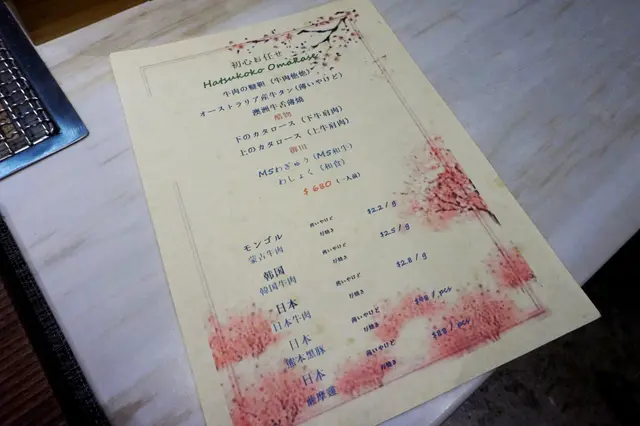 初心お任せ
Hatsukoko Omakase
オーストラリア産牛タン(薄いやけど)
澳洲牛舌薄燒
醋物
下のカタロース (下牛肩肉)
上のカタロース (上牛肩肉)
御川
M5わぎゅう (M5和牛)
わしょく (和食)
$680 (一人前)
モンゴル 薄いやけど $22/g
蒙古牛肉 厚燒き
韓国 薄いやけど $25/g
韓國牛肉 厚燒き
日本 薄いやけど $28/g
日本牛肉 厚燒き
日本 薄いやけど /pcs
熊本黒豚 厚燒き
日本 薄いやけど $88/pcs
薩摩蓮 厚燒き